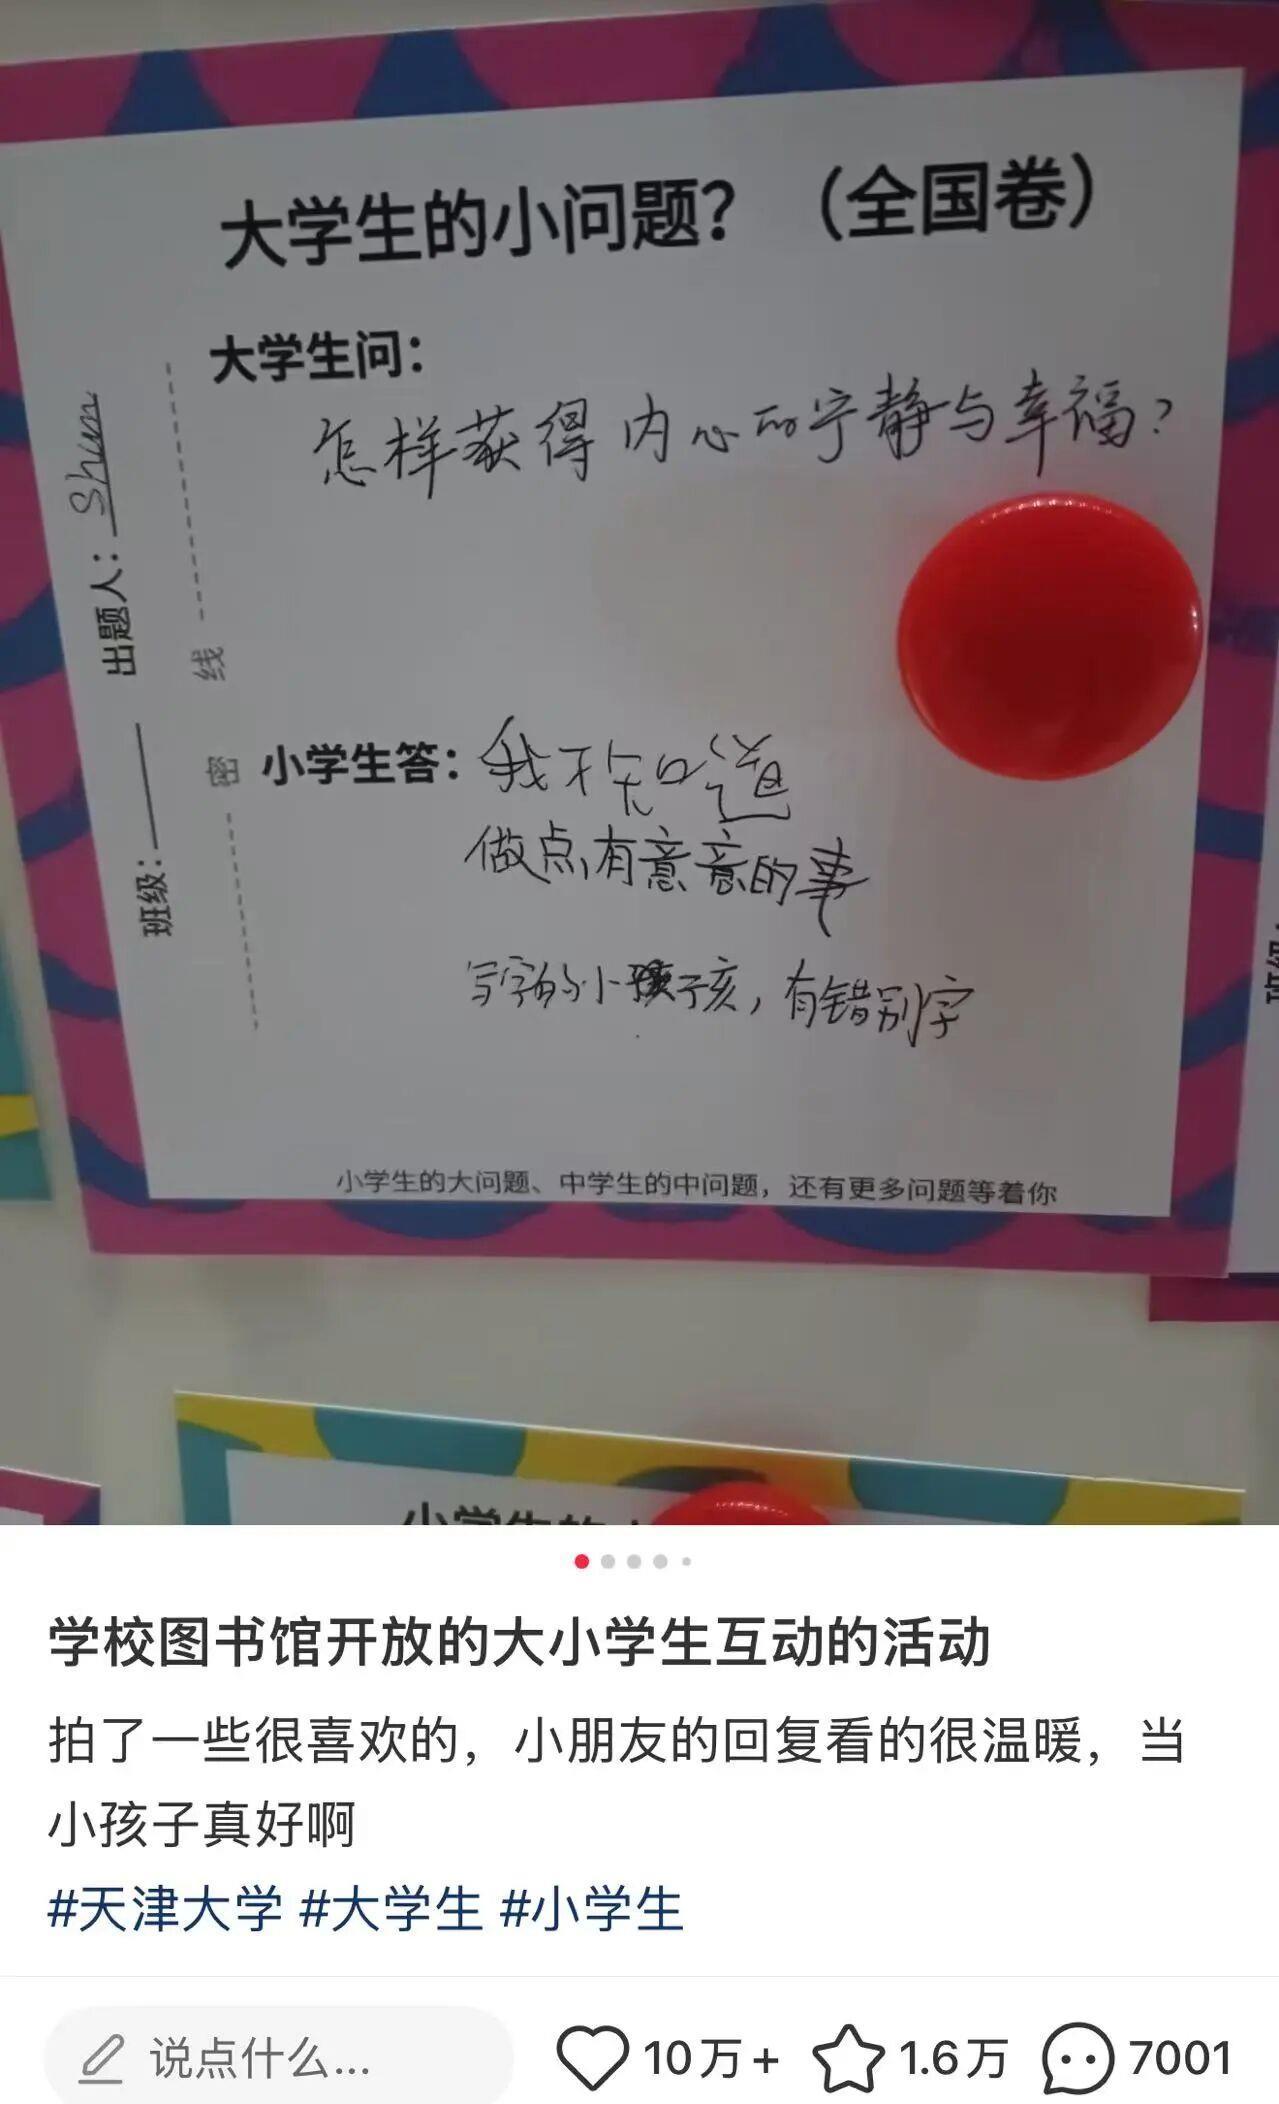 大学生的小问题？（全国卷）
大学生问：
怎样获得内心的宁静与幸福？
出题人：Shun
班级：
线
密
小学生答：我不知道
做点有意意的事
写字的小孩子亥，有错别字
小学生的大问题、中学生的中问题，还有更多问题等着你
学校图书馆开放的大小学生互动的活动
拍了一些很喜欢的，小朋友的回复看的很温暖，当
小孩子真好啊
#天津大学 #大学生 #小学生
说点什么...
10万+
1.6万
7001